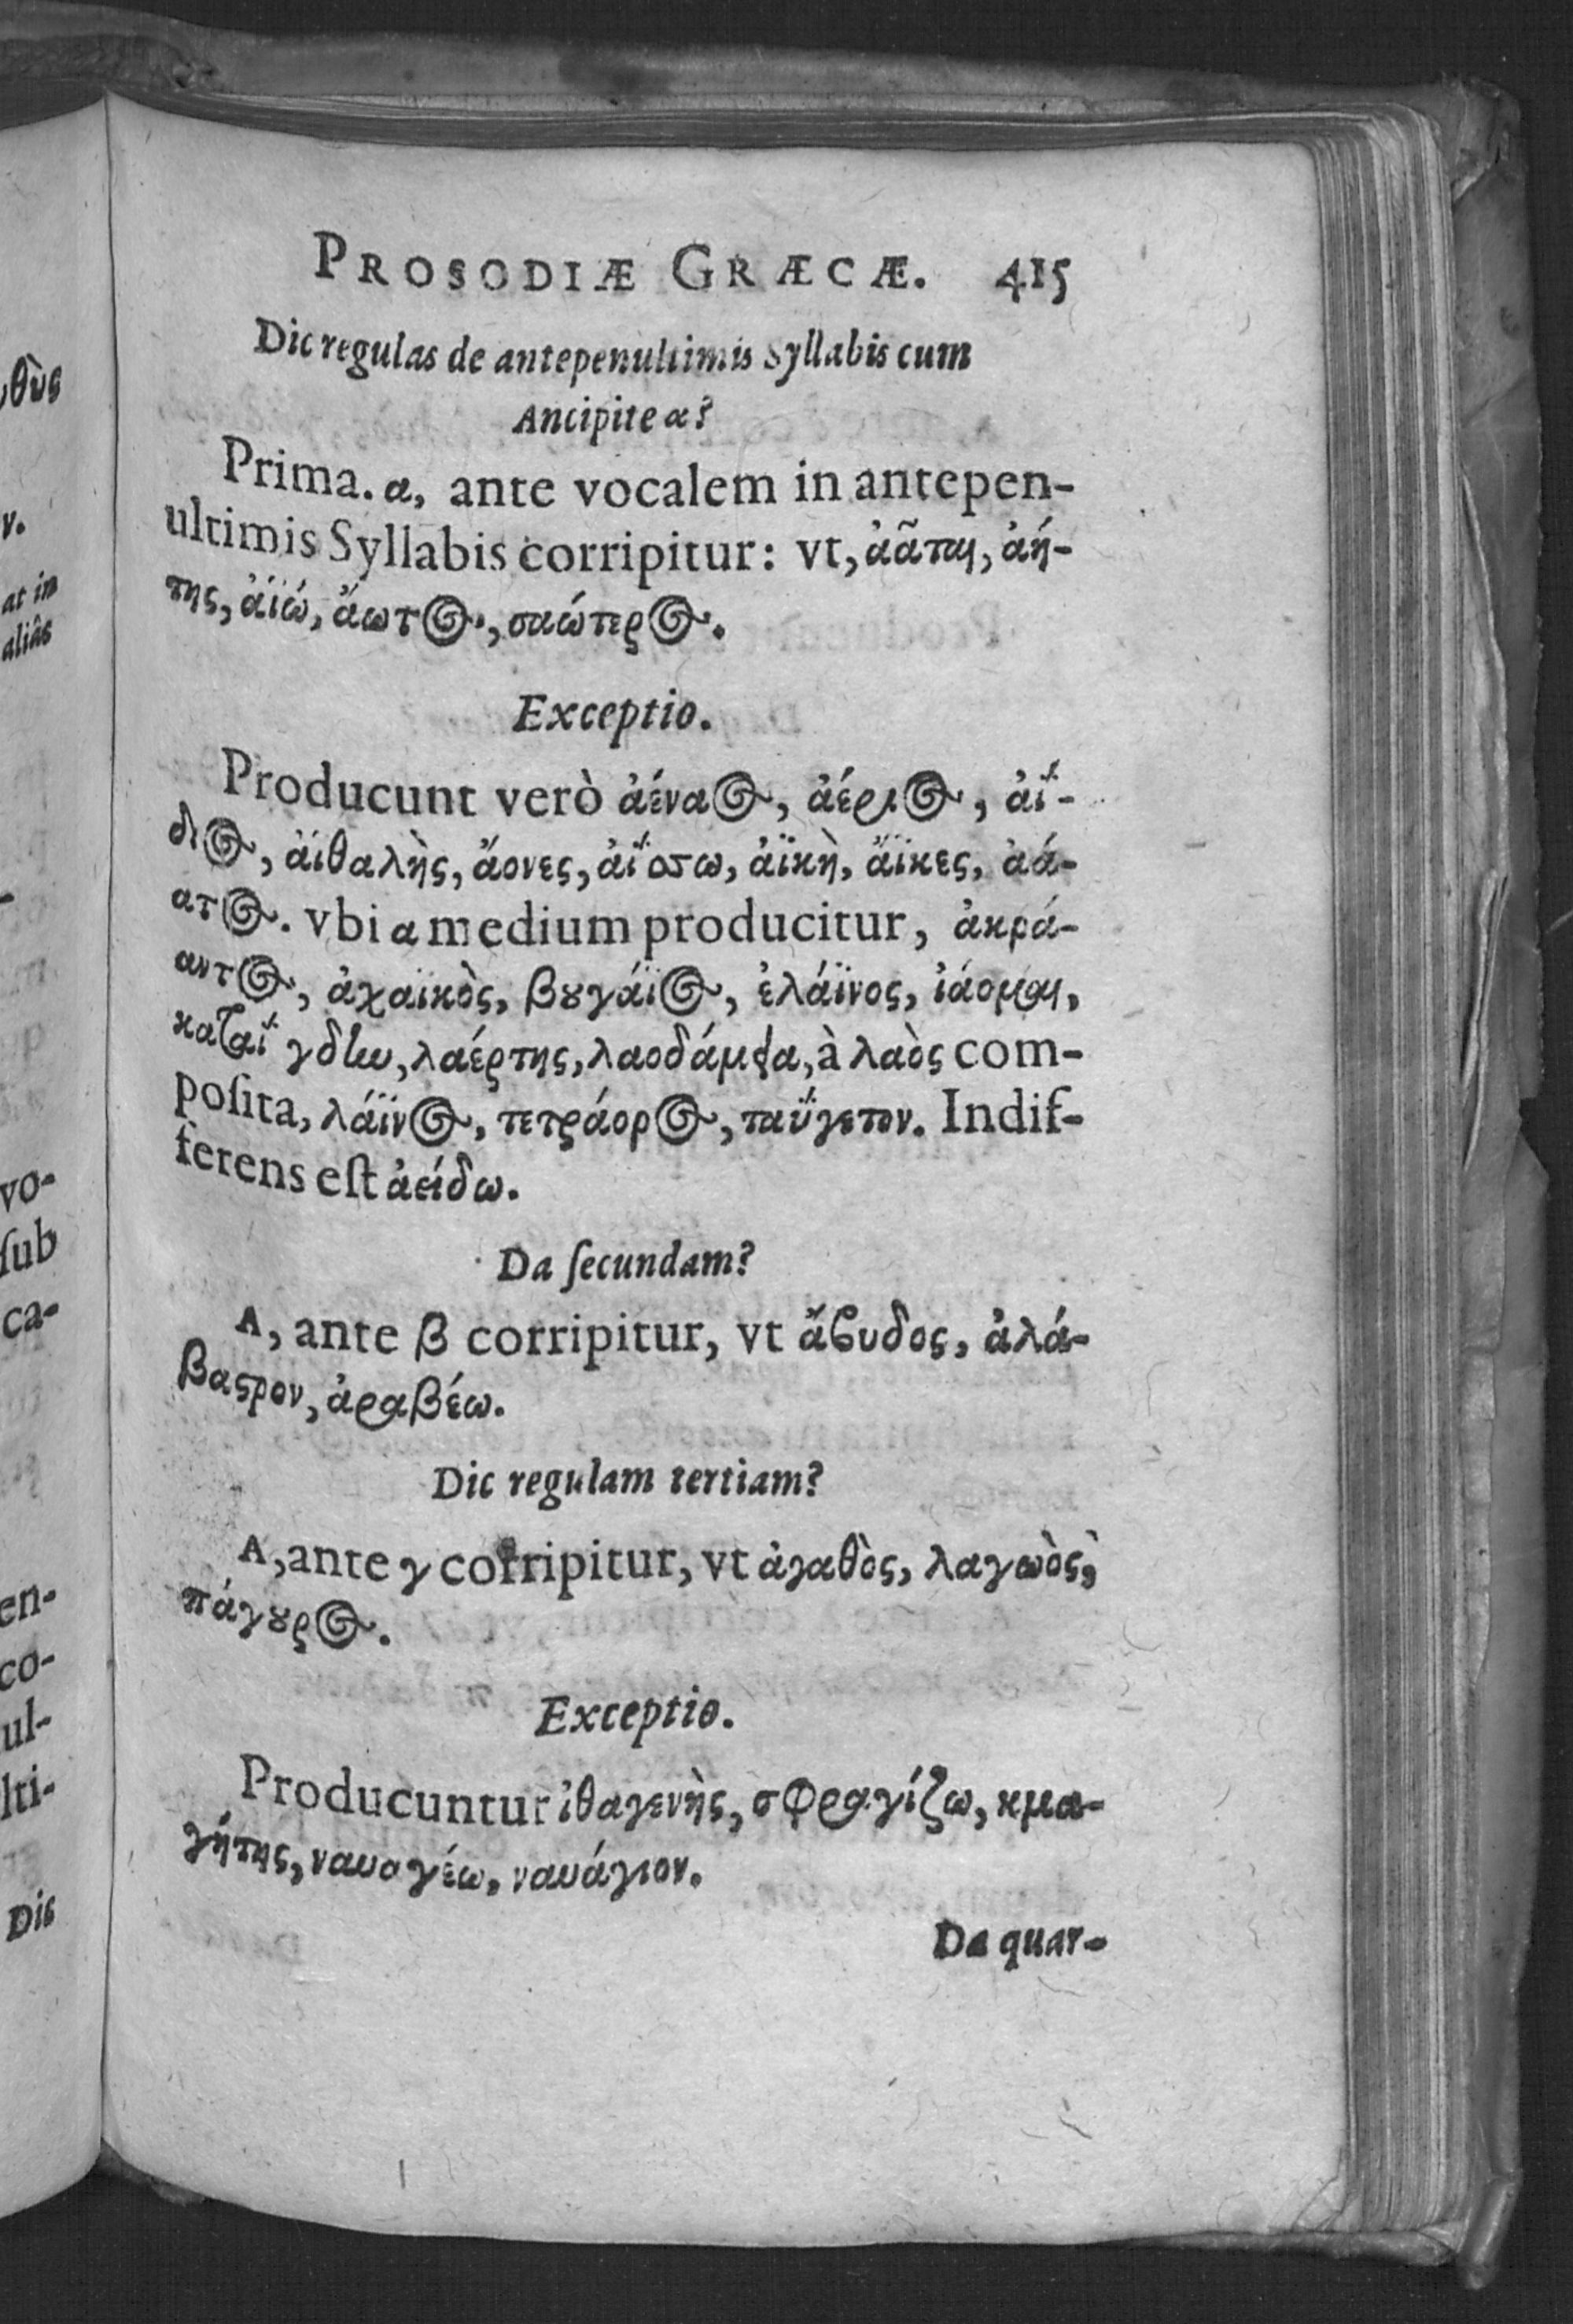 PROSODIÆ GRÆCÆ. 415
Dic regulas de antepenultimis Syllabis cum
Ancipite α?
Prima. α, ante vocalem in antepen-
ultimis Syllabis corripitur: vt, ἀᾶται, ἀή-
της, ἀϊώ, ἄωτος, σαώτερος.
Exceptio.
Producunt verò ἀέναος, ἀέριος, ἀΐ-
διος, ἀϊθαλὴς, ἄονες, ἀΐσσω, ἀϊκὴ, ἄϊκες, ἀά-
ατος. vbi α medium producitur, ἀκρά-
αντος, ἀχαϊκὸς, βουγάϊος, ἐλάϊνος, ἰάομαι,
καταΐγδην, λαέρτης, λαοδάμεια, à λαὸς com-
poſita, λάϊνος, τετράορος, ταΰγετον. Indif-
ferens eſt ἀείδω.
Da ſecundam?
A, ante β corripitur, vt ἄβυδος, ἀλά-
βαστρον, ἀραβέω.
Dic regulam tertiam?
A, ante γ corripitur, vt ἀγαθὸς, λαγωὸς,
πάγουρος.
Exceptio.
Producuntur ἰθαγενὴς, σφραγίζω, κμα-
γήτης, ναυαγέω, ναυάγιον.
Da quar-
θὺς
ν.
at in
aliâs
vo-
ſub
ca-
en-
co-
ul-
lti-
Dic